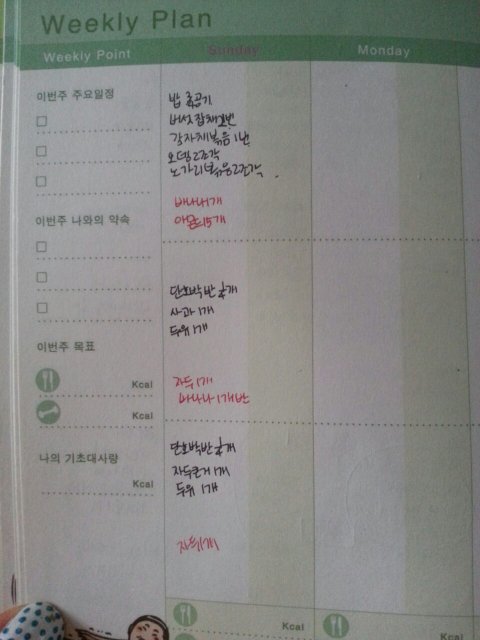 Weekly Plan
Weekly Point
Sunday
Monday
이번주 주요일정
이번주 나와의 약속
이번주 목표
Kcal
Kcal
나의 기초대사량
Kcal
밥 공기
버섯잡채 2번
감자채볶음 1번
오뎅 2조각
노가리볶음 2조각
바나나 1개
아몬드 15개
단호박 반 개
사과 1개
두유 1개
자두 1개
바나나 1개 반
단호박 반 개
자두큰거 1개
두유 1개
자두 1개
Kcal
Kcal